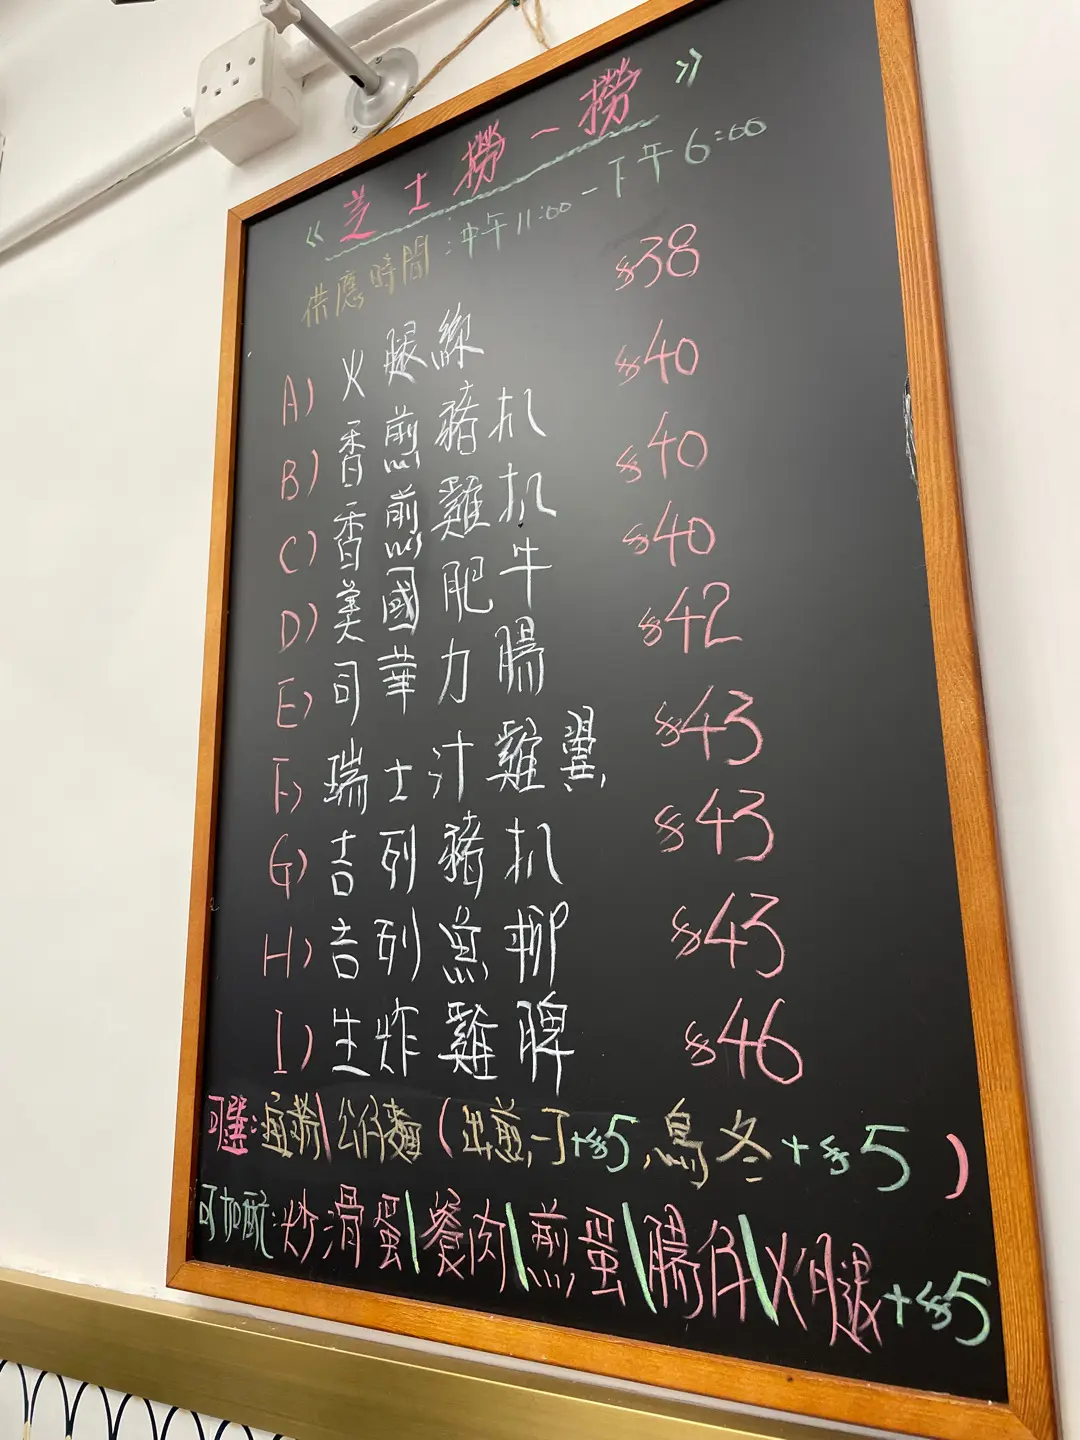 《芝士撈一撈》
供應時間：中午11:00－下午6:00
A) 火腿絲 $38
B) 香煎豬扒 $40
C) 香煎雞扒 $40
D) 美國肥牛 $40
E) 司華力腸 $42
F) 瑞士汁雞翼 $43
G) 吉列豬扒 $43
H) 吉列魚柳 $43
I) 生炸雞脾 $46
可選：公仔麵（出前一丁+$5，烏冬+$5）
可加配：炒滑蛋\餐肉\煎蛋\腸仔\火腿+$5